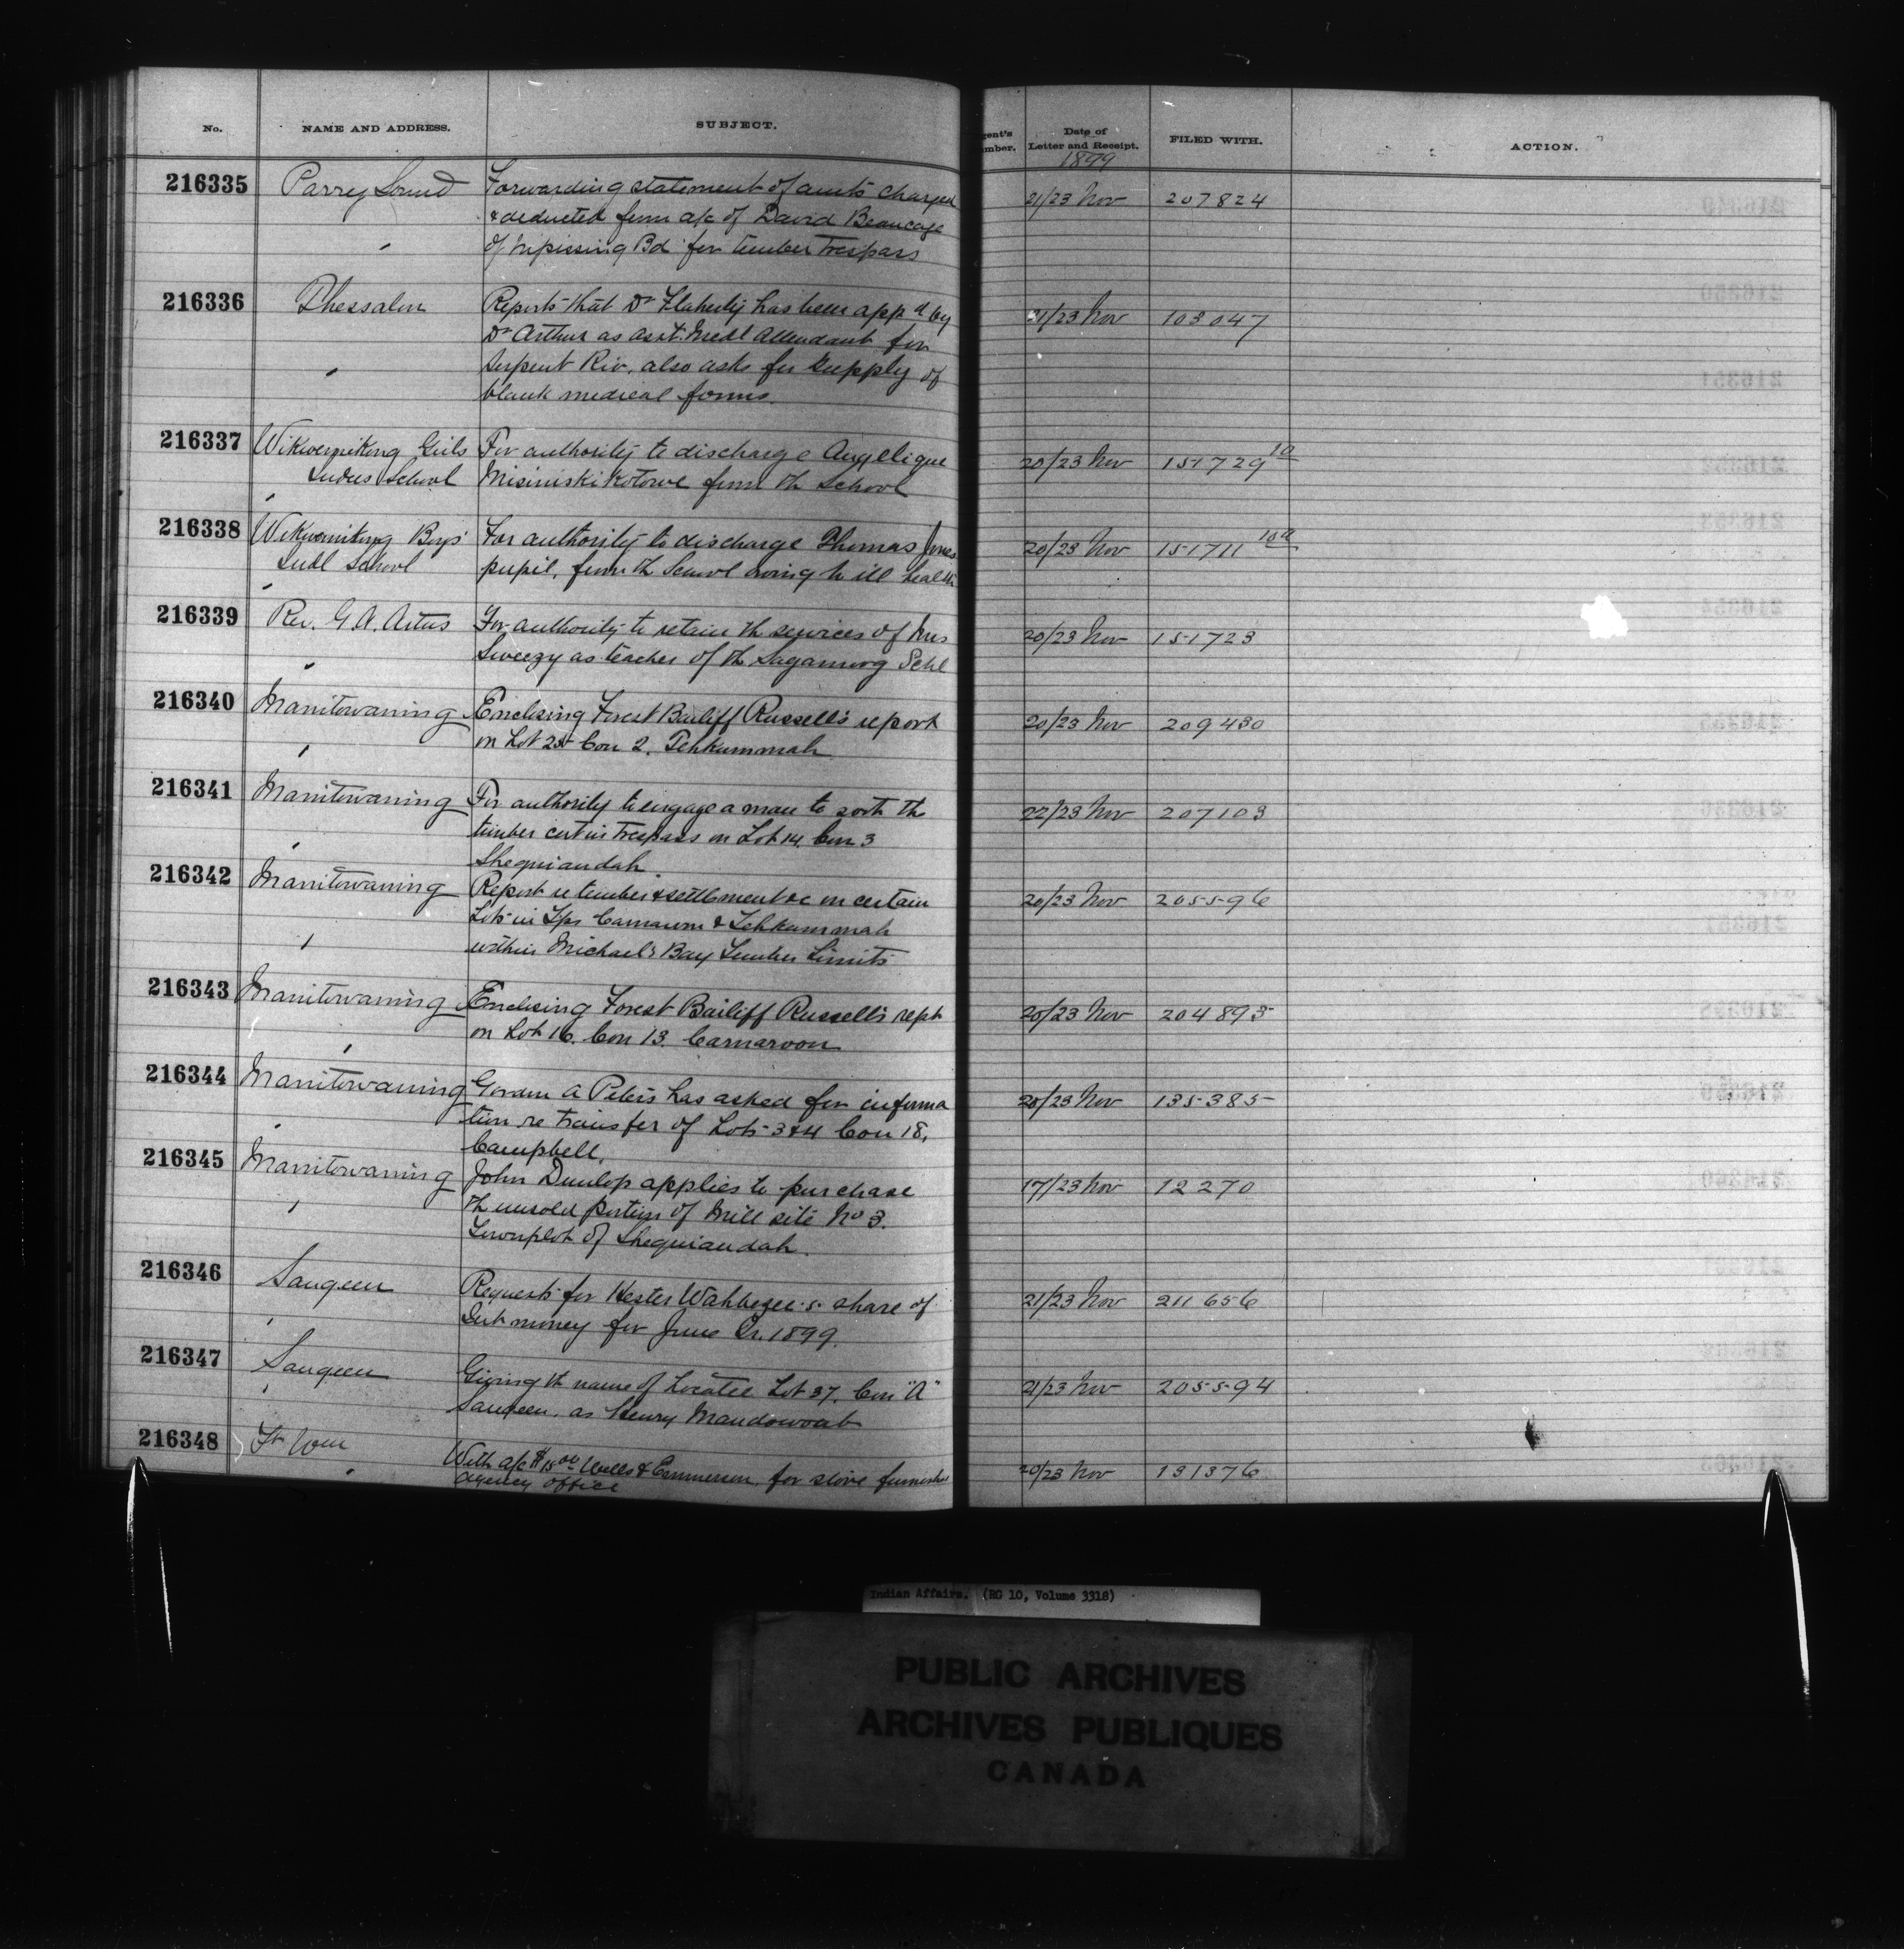 No. NAME AND ADDRESS. SUBJECT. gent's mber. Date of Letter and Receipt. FILED WITH. ACTION.
1899
216335 Parry Sound Forwarding statement of amts charged 21/23 Nov 207824
& deducted from a/c of David Beaucage
" of Nipissing Bd for timber trespass
216336 Thessalon Reports that Dr Flaherty has been appd by 21/23 Nov 103047
Dr Arthur as asst. Medl Attendant for
" Serpent Riv. also asks for supply of
blank medical forms.
216337 Wikwemikong Girls For authority to discharge Angelique 20/23 Nov 151729 10
Indus School Misiniskikotowe from th School
216338 Wikwemikong Boys' For authority to discharge Thomas Jones 20/23 Nov 151711 10a
Indl School pupil, from th School owing to ill health
216339 Rev. G. A. Artus For authority to retain th services of Mrs 20/23 Nov 151723
Sweezy as teacher of th Sagamoog Schl
216340 Manitowaning Enclosing Forest Bailiff Russell's report 20/23 Nov 209430
on Lot 25 Con 2. Tehkummah
216341 Manitowaning For authority to engage a man to sort th 22/23 Nov 207103
timber cut in trespass on Lot 14, Con 3
Sheguiandah.
216342 Manitowaning Report re timber & settlement &c on certain 20/23 Nov 205596
Lots in Tps Carnarvon & Tehkummah
within Michael's Bay Timber Limits
216343 Manitowaning Enclosing Forest Bailiff Russell's rept 20/23 Nov 204895
on Lot 16. Con 13. Carnarvon
216344 Manitowaning Gordon A Peters has asked for informa 20/23 Nov 135385
tion re transfer of Lots 3 & 4 Con 18,
Campbell.
216345 Manitowaning John Dunlop applies to purchase 17/23 Nov 12270
th unsold portion of Mill site No 3.
Townplot of Sheguiandah.
216346 Saugeen Requests for Hester Wahbezee's share of 21/23 Nov 211656
Int money for June Qr. 1899.
216347 Saugeen Giving th name of Locatee Lot 37, Con "A" 21/23 Nov 205594
Saugeen, as Henry Mandowoub
216348 Ft Wm With a/c $15.00 Wells & Emmerson, for stove furnished 20/23 Nov 131376
agency office
Indian Affairs. (RG 10, Volume 3318)
PUBLIC ARCHIVES
ARCHIVES PUBLIQUES
CANADA